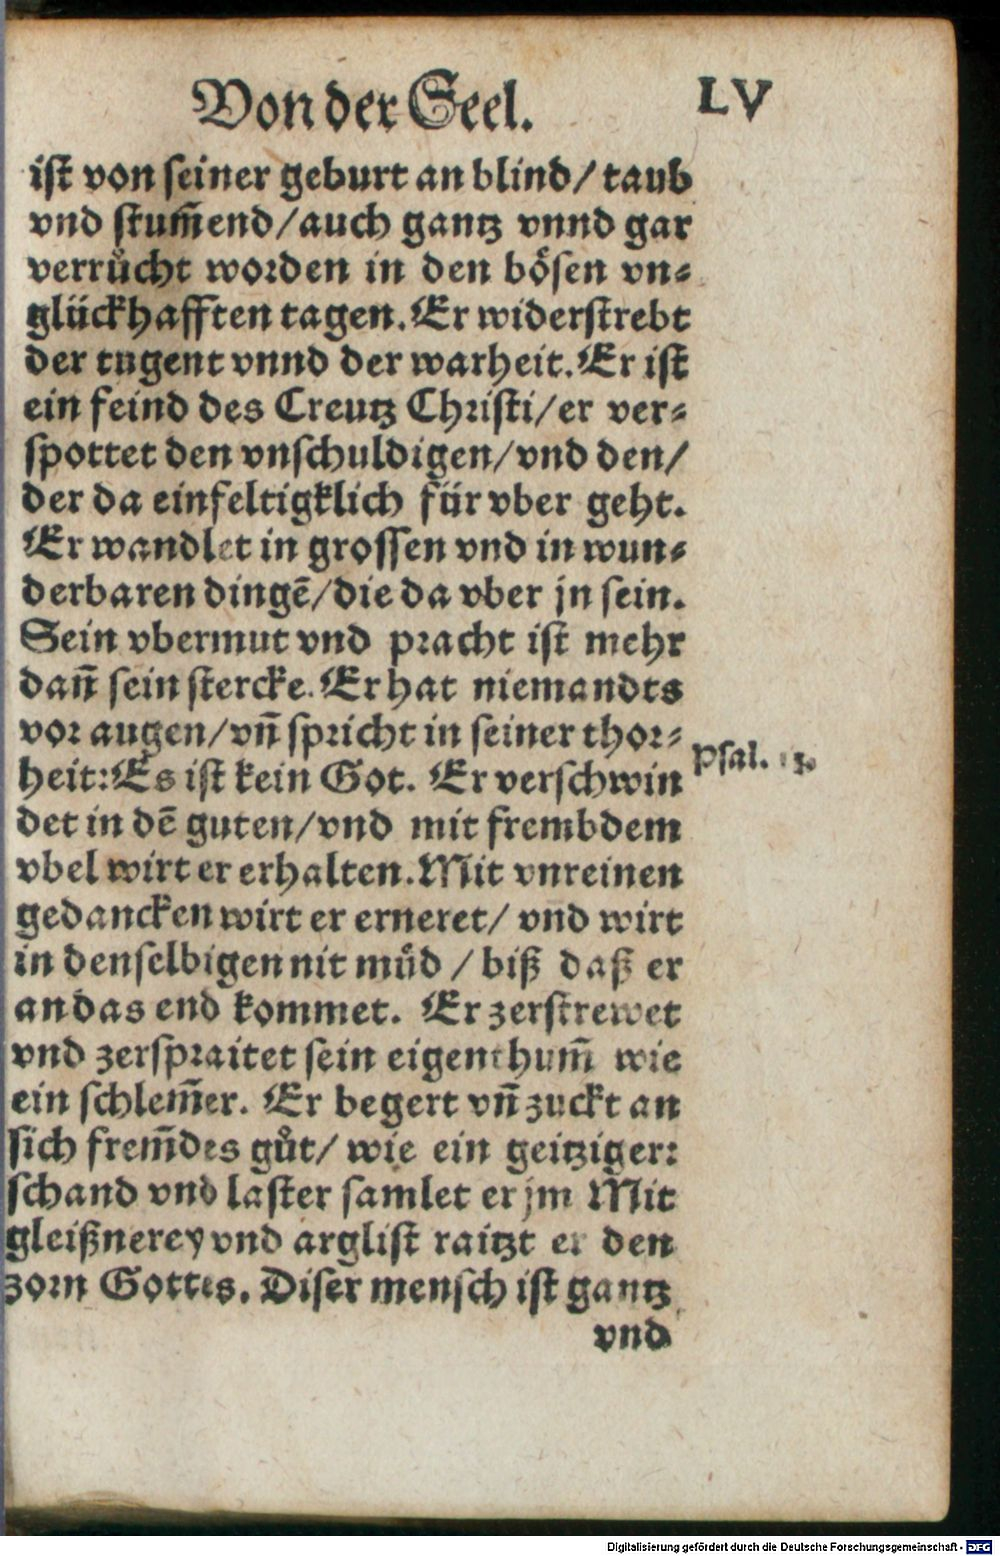 Von der Seel. LV
ist von seiner geburt an blind/ taub
vnd stum̃end/auch gantz vnnd gar
verrůcht worden in den bösen vn⸗
glückhafften tagen. Er widerstrebt
der tugent vnnd der warheit. Er ist
ein feind des Creutz Christi/er ver⸗
spottet den vnschuldigen/vnd den/
der da einfeltigklich für vber geht.
Er wandlet in grossen vnd in wun⸗
derbaren dingẽ/die da vber jn sein.
Sein vbermut vnd pracht ist mehr
dañ sein stercke. Er hat niemandts
vor augen/vñ spricht in seiner thor⸗
heit: Es ist kein Got. Er verschwin
Psal. 13.
det in dẽ guten/vnd mit frembdem
vbel wirt er erhalten. Mit vnreinen
gedancken wirt er erneret/ vnd wirt
in denselbigen nit můd / biß daß er
an das end kommet. Er zerstrewet
vnd zerspraitet sein eigenthum̃ wie
ein schlem̃er. Er begert vñ zuckt an
sich frem̃des gůt/ wie ein geitziger:
schand vnd laster samlet er jm Mit
gleißnerey vnd arglist raitzt er den
zorn Gottes. Diser mensch ist gantz
vnd
Digitalisierung gefördert durch die Deutsche Forschungsgemeinschaft - DFG